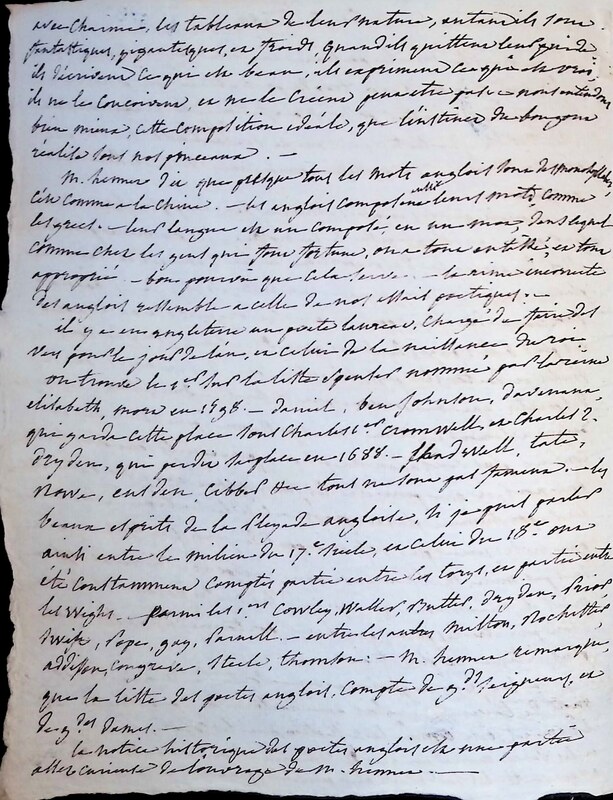 avec charme, les tableaux de leur nature, autant ils sont
fantastiques, gigantesques, et froids, quand ils quittent leur guide
ils décrivent ce qui est beau, ils expriment ce qui est vrai,
ils ne le conçoivent, et ne le créent peut etre pas – nous entendons
bien mieux, cette composition idéale, que l'instinct du bon gout
réalise sous nos pinceaux. –
M. hennet dit que presque tous les mots anglois sont des monosyllabes
c'est comme a la Chine. – les anglois composent aussi leurs mots comme
les grecs. – leur langue est un composé, en un mot, dans lequel
comme chez les gens qui font fortune, on a tout entassé, et tout
approprié – bon pourvu que cela serve. – la rime incorrecte
des anglois ressemble a celle de nos essais poetiques. –
il y a en angleterre un poete laureat, chargé de faire des
vers pour le jour de l'an, et celui de la naissance du roi
on trouve le 1er sur la liste spenser nommé par la reine
elisabeth, mort en 1598. – daniel, ben Johnson, davenant,
qui garda cette place sous Charles 1er Cromwell, et Charles 2.
dryden, qui perdit sa place en 1688. – Shadwell, tate,
rowe, eusden, Cibber &c tous ne sont pas fameux. – les
beaux esprits de la pleyade angloise, si je puis parler
ainsi entre le milieu du 17e siecle, et celui du 18e ont
été constamment comptés partie entre les torys, et partie entre
les Wighs. – parmi les 1ers Cowley, Waller, Butler, dryden, Prior
Swift, Pope, gay, Parnell. – entre les autres Milton, Rochester,
addison, Congreve, Steele, thomson. – M. hennet remarque,
que la liste des poetes anglois, compte de gds seigneurs, et
de gdes dames. –
la notice historique des poetes anglois est une partie
assez curieuse de l'ouvrage de M. hennet. –